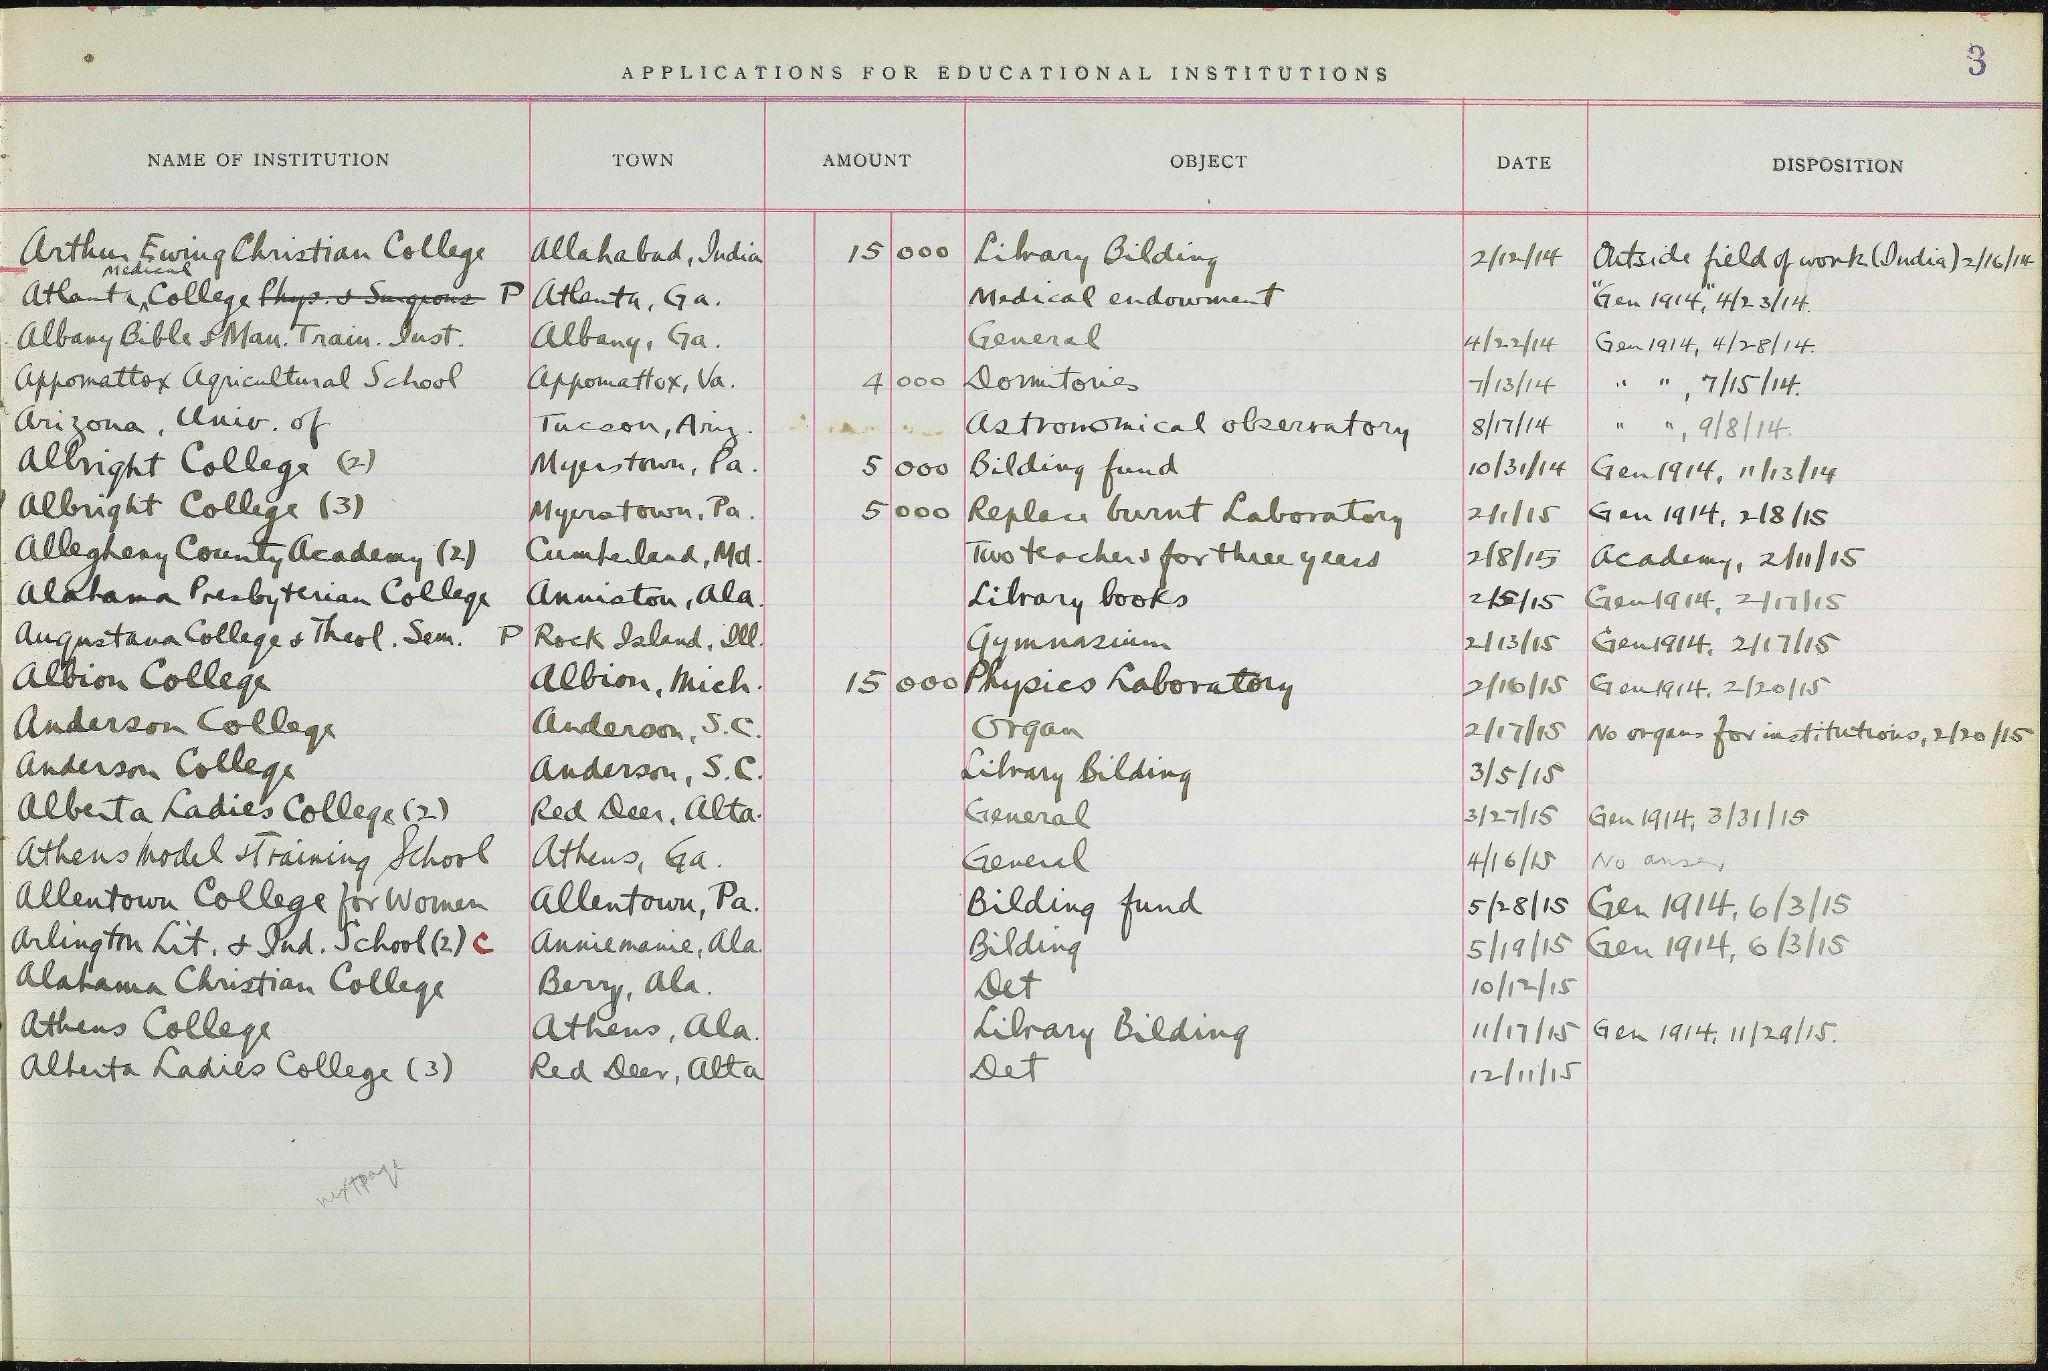 3
APPLICATIONS FOR EDUCATIONAL INSTITUTIONS
NAME OF INSTITUTION TOWN AMOUNT OBJECT DATE DISPOSITION
Arthur Ewing Christian College Allahabad, India 15 000 Library Bilding 2/12/14 Outside field of work (India) 2/16/14
Medical
Atlanta ^ College Phys. & Surgeons P Atlanta, Ga. Medical endowment "Gen 1914," 4/23/14.
Albany Bible & Man. Train. Inst. Albany, Ga. General 4/22/14 Gen 1914, 4/28/14.
Appomattox Agricultural School Appomattox, Va. 4 000 Dormitories 7/13/14 " ", 7/15/14.
Arizona, Univ. of Tucson, Ariz. Astronomical observatory 8/17/14 " ", 9/8/14.
Albright College (2) Myerstown, Pa. 5 000 Bilding fund 10/31/14 Gen 1914, 11/13/14
Albright College (3) Myerstown, Pa. 5 000 Replace burnt Laboratory 2/1/15 Gen 1914, 2/8/15
Allegheny County Academy (2) Cumberland, Md. Two teachers for three years 2/8/15 Academy, 2/11/15
Alabama Presbyterian College Anniston, Ala. Library books 2/5/15 Gen 1914, 2/17/15
Augustana College & Theol. Sem. P Rock Island, Ill. Gymnasium 2/13/15 Gen 1914, 2/17/15
Albion College Albion, Mich. 15 000 Physics Laboratory 2/16/15 Gen 1914, 2/20/15
Anderson College Anderson, S.C. Organ 2/17/15 No organs for institutions, 2/20/15
Anderson College Anderson, S.C. Library Bilding 3/5/15
Alberta Ladies College (2) Red Deer, Alta. General 3/27/15 Gen 1914, 3/31/15
Athens Model & Training School Athens, Ga. General 4/16/15 No anser
Allentown College for Women Allentown, Pa. Bilding fund 5/28/15 Gen 1914, 6/3/15
Arlington Lit. & Ind. School (2) C Anniemanie, Ala. Bilding 5/19/15 Gen 1914, 6/3/15
Alabama Christian College Berry, Ala. Det 10/12/15
Athens College Athens, Ala. Library Bilding 11/17/15 Gen 1914, 11/29/15.
Alberta Ladies College (3) Red Deer, Alta Det 12/11/15
next page